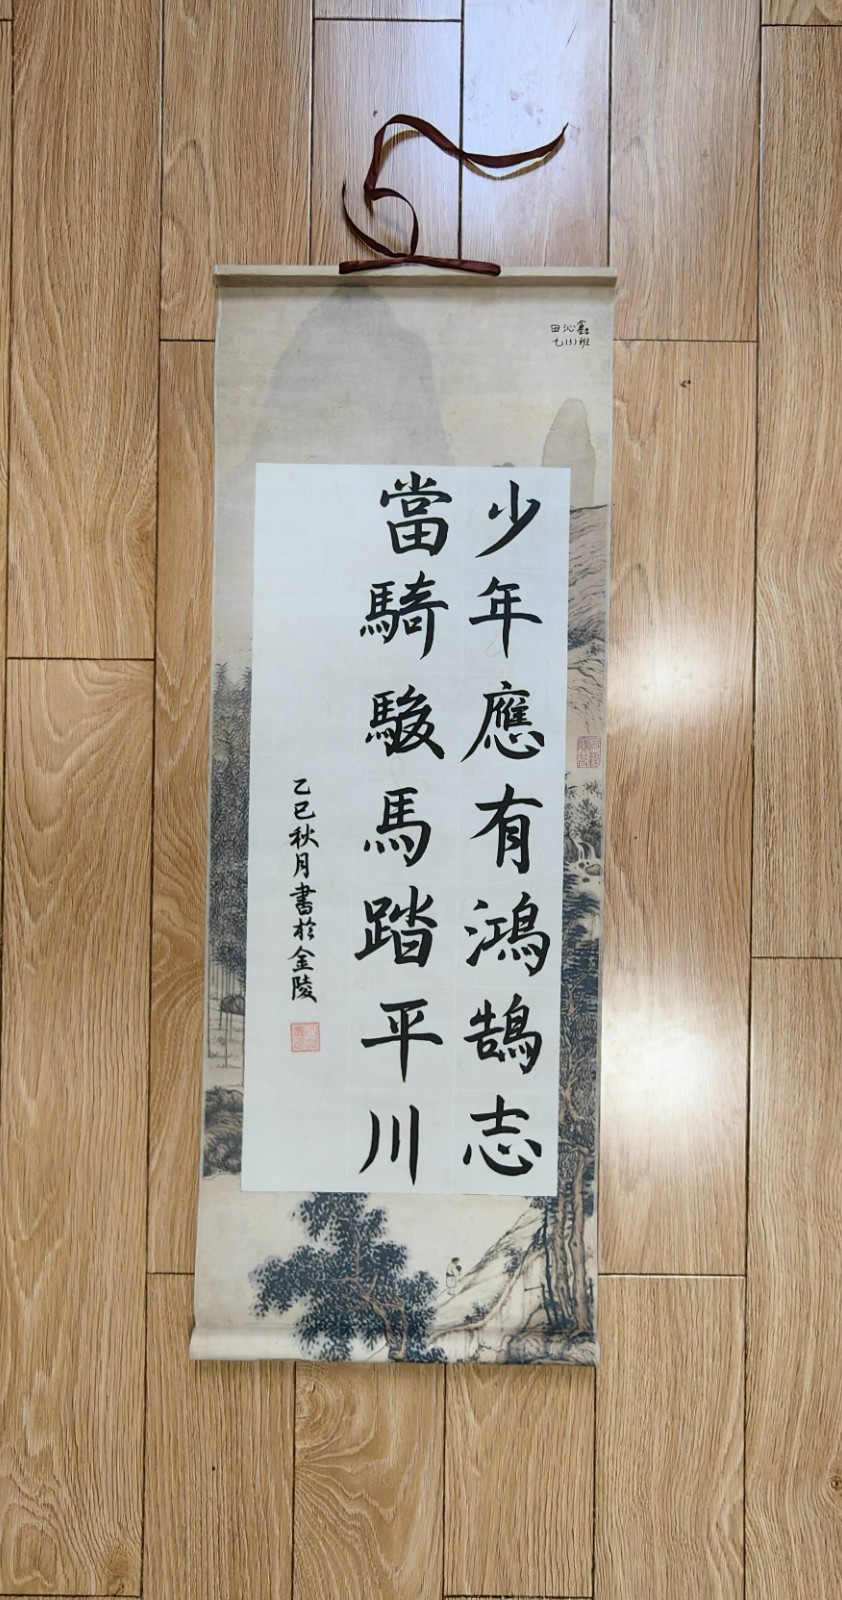 田沁鑫
七(3)班
少年應有鴻鵠志
當騎駿馬踏平川
乙巳秋月書於金陵